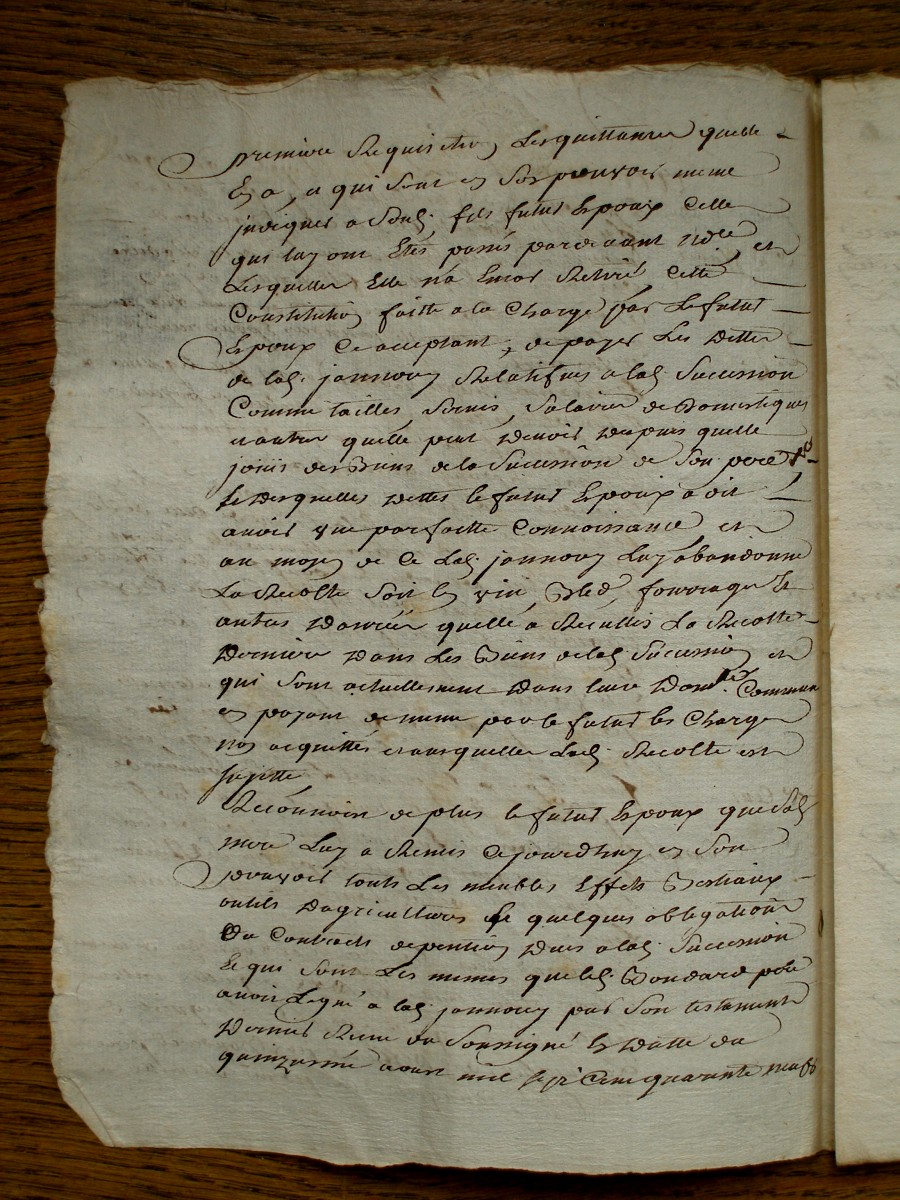 premiere Requisition Les quittances quelle
En a, a qui sont en son pouvoir meme
jndiquer a Sond. fils futur Epoux Celles
qui luy ont Etés passés pardevant Nore et
Lesquelles Elle n'a Encor Retiré Cette
Constitution faitte a la Charge par Le futur
Epoux Ce acceptant, de payer Les dettes
de lad. jannouy Relatifves a lad. Succession
Comme tailles, Servis, Salaires de Domestiques
et autres quelle peut devoir depuis quelle
jouis des Biens de la Succession de Son pere
Desquelles dettes le futur Epoux a dit
avoir une parfaitte Connoissance et
au moyen de Ce Lad. jannouy Luy abandonne
La Recolte Soit En vin, Bled, fourrage Et
autres danrées quelle a Recullis La Recolte
Derniere dans Les Biens de lad. Succession et
qui Sont actuellement dans leur Domlle Commun
en payant de meme par le futur les Charges
non acquittés et auxquelles Lad. Recolte est
Sujette
Reconnoit de plus le futur Epoux que Sad.
mere Luy a Remis Cejourdhuy en Son
pouvoir touts Les meubles Effets Bestiaux
outils Dagricultures Et quelques obligations
Ou Contracts de pention dues a lad. Succession
Et qui Sont Les memes que led. Dondard pere
avoit Legué a lad. jannouy par Son testament
Dernier Recu du Soussigné En Datte du
quinzieme aoust mil Sept Cent quarante neuf